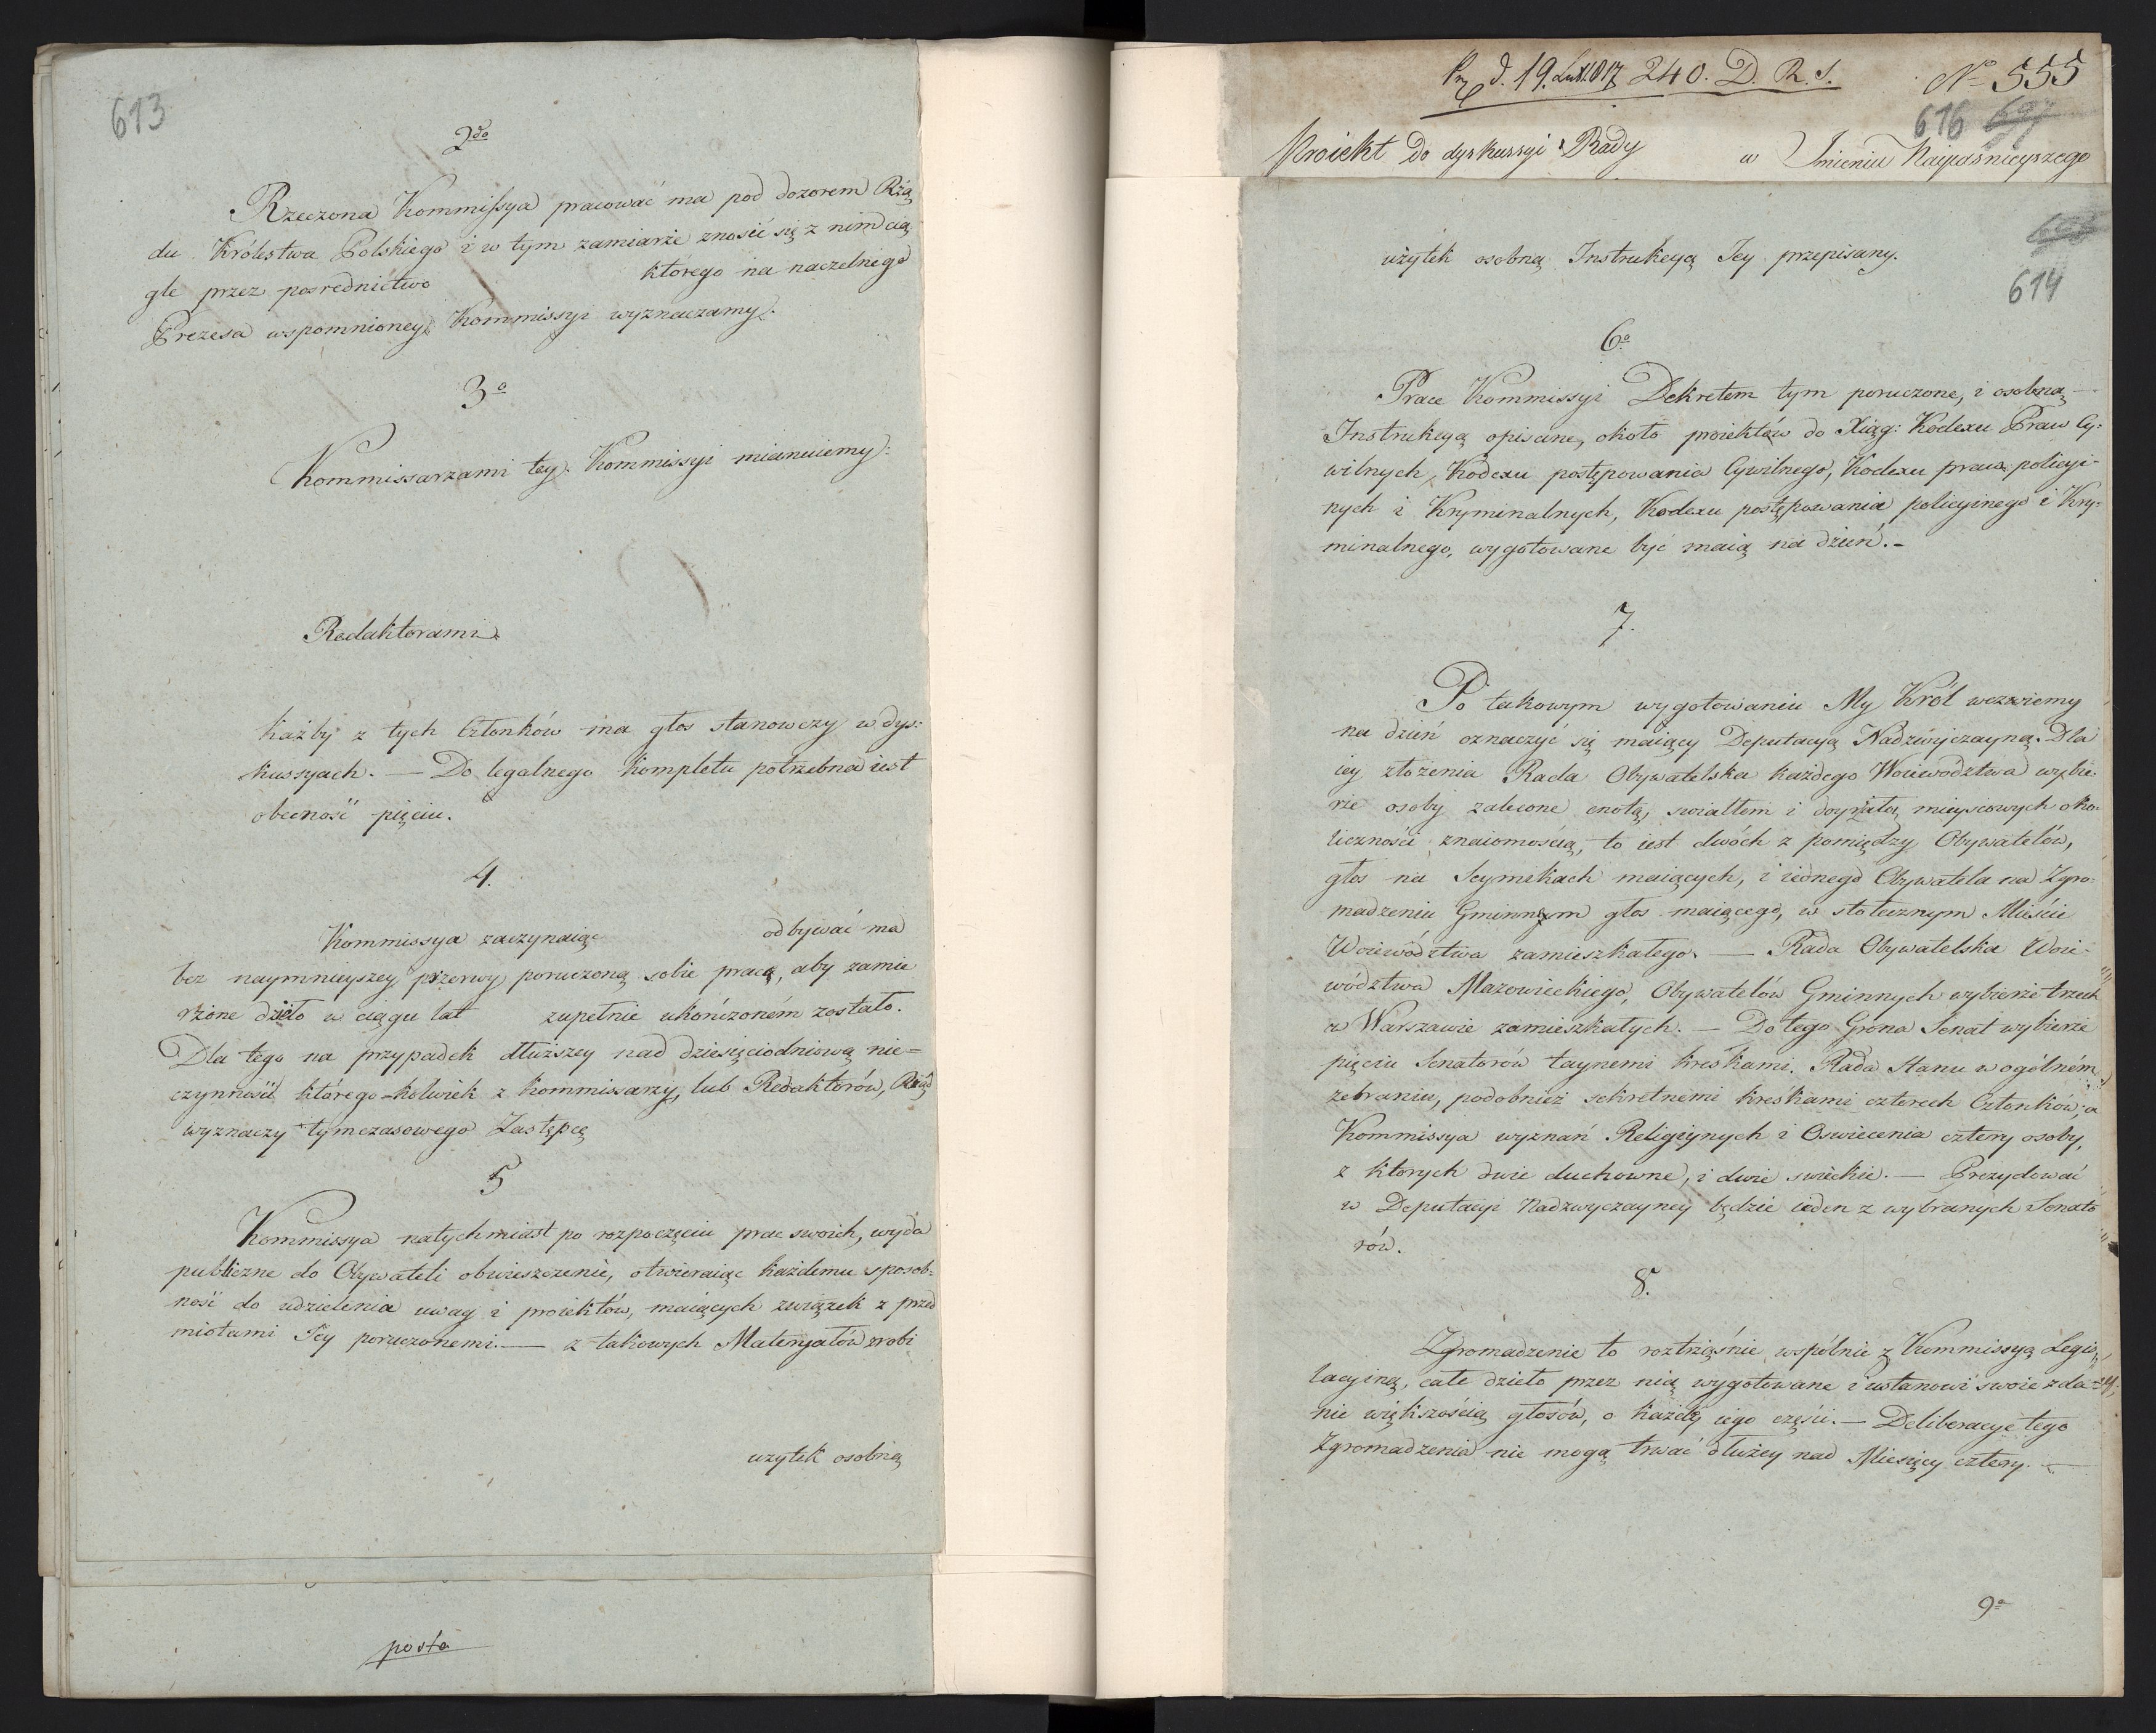 613
2do
Rzeczona Kommissya pracować ma pod dozorem Rzą
du Królestwa Polskiego i w tym zamiarze znosić się z nim cią
gle przez pośrednictwo którego na naczelnego
Prezesa wspomnioney Kommissyi wyznaczamy.
3o
Kommissarzami tey Kommissyi mianuiemy:
Redaktorami.
każdy z tych Członków ma głos stanowczy w dys:
kussyach. — Do legalnego kompletu potrzebna iest
obecność pięciu.
4.
Kommissya zaczynaiąc odbywać ma
bez naymnieyszey przerwy poruczoną sobie pracę, aby zamie
rzone dzieło w ciągu lat zupełnie ukończoném zostało.
Dla tego na przypadek dłuższey nad dziesięciodniową nie=
czynność którego-kolwiek z Kommissarzy, lub Redaktorów, Rząd
wyznaczy tymczasowego Zastępcę
5
Kommissya natychmiast po rozpoczęciu prac swoich, wyda
publiczne do Obywateli obwieszczenie, otwieraiąc każdemu sposob=
ność do udzielenia uwag i proiektów, maiących związek z przed
miotami Jey poruczonemi. — z takowych Materyałów zrobi
uzytek osobną
posta
Prz d. 19. Lut. 1817 240. D. R. S.
No 555
616
Proiekt do dyskussyi Rady w Imieniu Nayiaśnieyszego
614
użytek osobną Instrukcyą Jey przepisany.
6o
Prace Kommissyi Dekretem tym poruczone, i osobną —
Instrukcyą opisane, około proiektów do Xiąg: Kodexu Praw Cy:
wilnych, Kodexu postępowania Cywilnego, Kodexu praw policyi-
nych i Kryminalnych, Kodexu postępowania policyinego i Kry-
minalnego, wygotowane być maią na dzień. -
7.
Po takowym wygotowaniu My Król wezwiemy
na dzień oznaczyć się maiący Deputacyą Nadzwyczayną. Dla
iey złożenia Rada Obywatelska każdego Woiewództwa wybie-
rze osoby zalecone cnotą, swiatłem i doyrzałą mieyscowych oko-
liczności znaiomością, to iest dwóch z pomiędzy Obywatelów,
głos na Seymikach maiących, i iednego Obywatela na Zgro-
madzeniu Gminnym głos maiącego, w stołecznym Mieście
Woiewództwa zamieszkałego. — Rada Obywatelska Woie-
wództwa Mazowieckiego, Obywatelów Gminnych wybierze trzech
w Warszawie zamieszkałych. — Do tego Grona Senat wybierze
pięciu Senatorów taynemi kreskami. Rada Stanu w ogólném
zebraniu, podobnież sekretnemi kreskami czterech Członków, a
Kommissya wyznań Religiynych i Oswiecenia cztery osoby,
z których dwie duchowne, i dwie swieckie. — Prezydować
w Deputacyi Nadzwyczayney będzie ieden z wybranych Senato
rów.
8.
Zgromadzenie to roztrząśnie wspólnie z Kommissyą Legis,
lacyiną, całe dzieło przez nią wygotowane i ustanowi swoie zda=
nie większością głosów, o każdéy iego części. — Deliberacye tego
Zgromadzenia nie mogą trwać dłużey nad Miesięcy cztery. —
9o